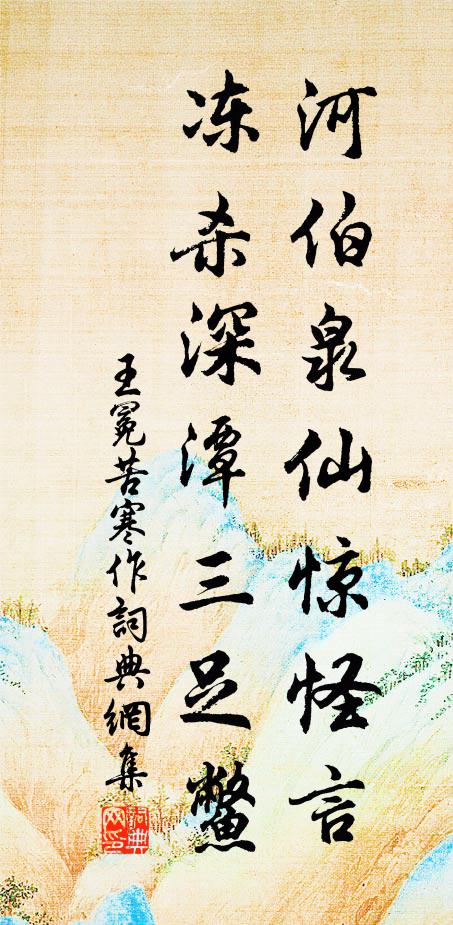 河伯泉仙惊怪言
冻杀深潭三足鳖
王冕苦寒作詞典網集
詞典网印